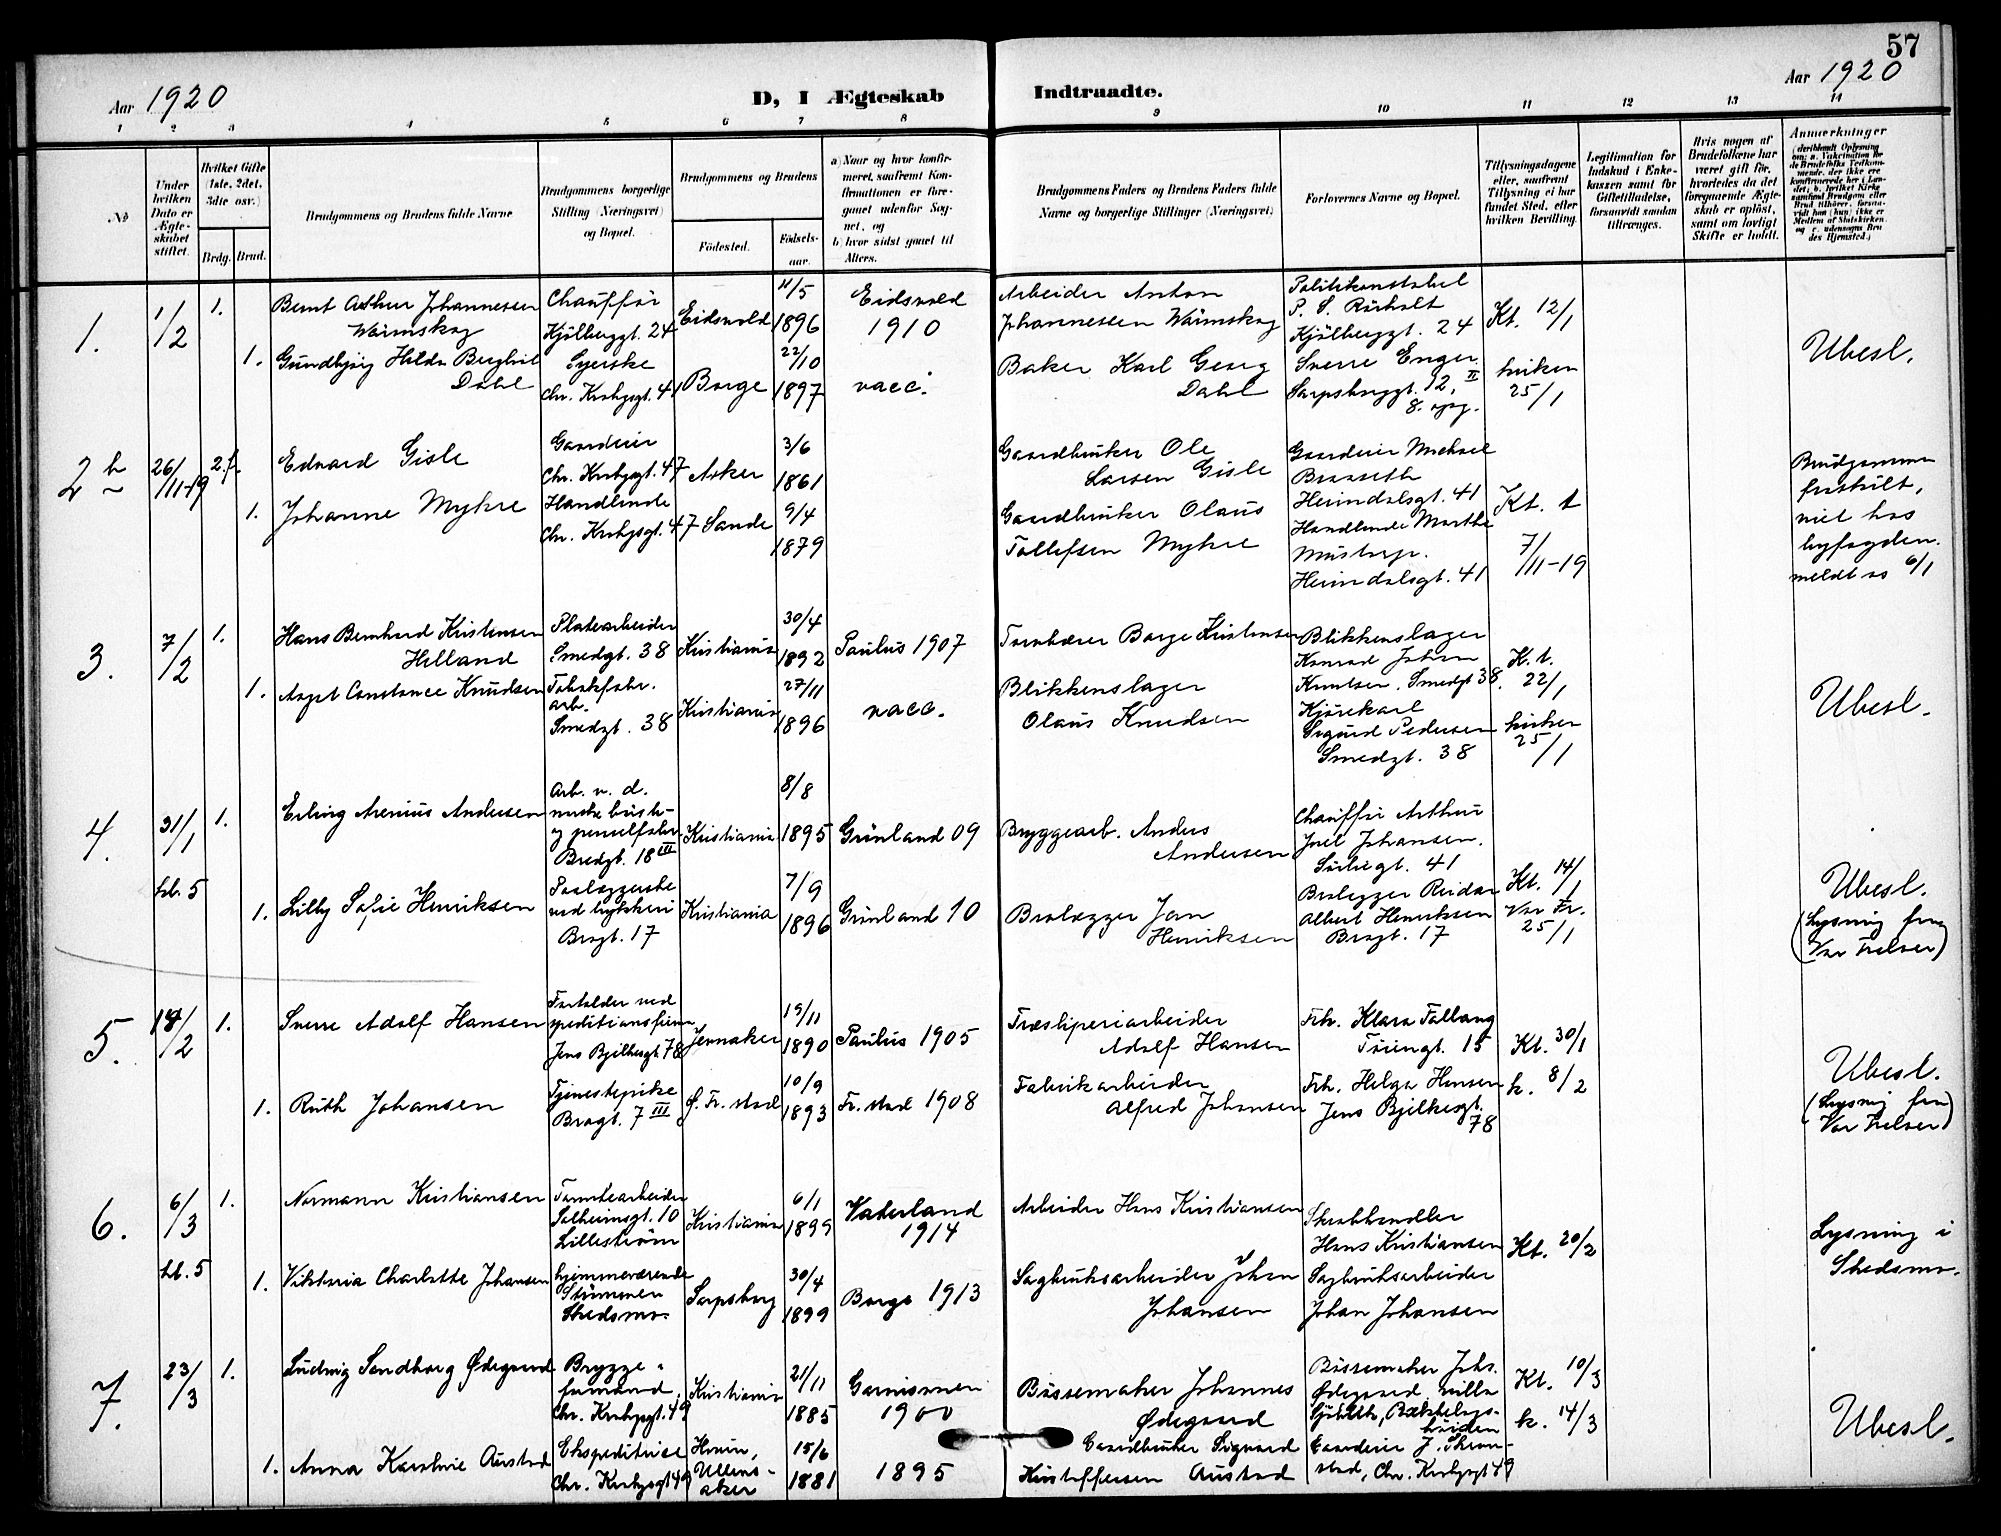 57
Aar 1920
D, I Ægteskab Indtraadte.
Aar 1920
1 2 3 4 5 6 7 8 9 10 11 12 13 14
No
Under hvilken Dato er Ægteskabet stiftet.
Hvilket Gifte (1ste, 2det, 3die osv.)
Brdg. Brud.
Brudgommens og Brudens fulde Navne
Brudgommens borgerlige Stilling (Næringsvei) og Bopæl.
Brudgommens og Brudens
Födested. Födselsaar.
a) Naar og hvor konfirmeret, saafremt Konfirmationen er foregaaet udenfor Sognet, og
b) hvor sidst gaaet til Alters.
Brudgommens Faders og Brudens Faders fulde Navne og borgerlige Stillinger (Næringsvei)
Forlovernes Navne og Bopæl.
Tillysningsdagene eller, saafremt Tillysning ei har fundet Sted, efter hvilken Bevilling.
Legitimation for Indskud i Enkekassen samt for Giftetilladelse, forsaavidt saadan tiltrænges.
Hvis nogen af Brudefolkene har været gift för, hvorledes da det foregaaende Ægteskab er oplöst, samt om lovligt Skifte er holdt.
Anmærkninger
1. 1/2 1.
Bernt Arthur Johannessen
Wærnskog
Chauffør
Kjölberggt. 24
Eidsvold
11/5
1896
Eidsvold
1910
Arbeider Anton
Johannessen Wærnskog
Politikonstabel
Kjölberggt. 24
Kt. 12/1
Ubesl.
1. Gundbjörg Hilda Borghild
Dahl
Syerske
Chr. Krohgsgt. 41
Borge
22/10
1897
vacc.
Baker Karl Georg
Dahl
Sverre Enger
Sarpsborggt. 12, II
8. opg.
kirken
25/1
2 b 26/11-19 2. f.
Edvard Gisle
Gaardeier
Chr. Krohgsgt. 47
Asker
3/6
1861
Gaardbruker Ole
Larsen Gisle
Gaardeier Michael
Braaseth
Heimdalsgt. 41
Kt. t
7/11-19
Brudgommen
fraskilt,
viet hos
byfogden.
meldt os 6/1
1. Johanne Myhre
Handlende
Chr. Krohgsgt. 47
Sande
9/4
1879
Gaardbruker Olaus
Tollefsen Myhre
Handlende Marthe
Heimdalsgt. 41
3. 7/2 1.
Hans Bernhard Kristensen
Helland
Platearbeider
Smedgt. 38
Kristiania
30/4
1892
Paulus 1907
Blikkenslager
Konrad Johan
Knutsen, Smedgt 38.
K. t.
22/1
Ubesl.
1. Aagot Constance Knudsen
Tobakfabr.
arb.
Smedgt. 38
Kristiania
27/11
1896
vacc.
Blikkenslager
Olaus Knudsen
Kjörekarl
Sigurd Pedersen
Smedgt. 38
kirken
25/1
4. 31/1 1.
Erling Arenius Andersen
Arb. v. d.
norske börste-
og penselfabr.
Bredgt. 18 III
Kristiania
8/8
1895
Grönland 09
Bryggearb. Anders
Andersen
Chauffør Arthur
Joel Johansen.
Sörligt. 41
Kt. 14/1
Ubesl.
(Lysning fra
Vor Frelser)
kl. 5
1. Lilly Sofie Henriksen
Paalæggerske
ved trykkeri
Bragt. 17
Kristiania
7/9
1896
Grönland 10
Brolægger Jon
Henriksen
Brolegger Reidar
Albert Henriksen
Bragt. 17
Vor Fr.
25/1
5. 14/2 1.
Sverre Adolf Hansen
Forvalder ved
speditionsfirma
Jens Bjelkesgt 78
Jevnaker
19/11
1890
Paulus 1905
Træsliperiarbeider
Adolf Hansen
Frk. Klara Fallang
Töiengt. 15
Kt. 30/1
k. 8/2
Ubesl.
(Lysning fra
Vor Frelser)
1. Ruth Johansen
Tjenestepike
Bragt. 7 III
g. Fr. stad
10/9
1893
Fr. stad 1908
Fabrikarbeider
Alfred Johansen
Frk. Helga Hansen
Jens Bjelkesgt.
78
6. 6/3 1.
Normann Kristiansen
Tomtearbeider
Solheimsgt. 10
Lilleström
Kristiania
6/1
1899
Vaterland
1914
Arbeider Hans Kristiansen
Skrabhandler
Hans Kristiansen
Kt. 20/2
Lysning i
Skedsmo.
kl. 5
1. Viktoria Charlotte Johansen
hjemmeværende
Strömmen
Skedsmo.
Sarpsborg
30/4
1899
Borge 1913
Sagbruksarbeider Johan
Johansen
Sagbruksarbeider
Johan Johansen
7. 23/3 1.
Ludvig Sandborg Ødegaard
Brygge-
formand,
Chr. Krohgsgt. 49
Kristiania
21/11
1885
Garnisonen
1900
Bössemaker Johannes
Ødegaard
Bössemaker Johs.
Ødegaard, villa
Kt. 10/3
k. 14/3
Ubesl.
1. Anna Karoline Austad
Ekspeditrise
Chr. Krohgsgt 49
Hovin,
Ullens-
aker
15/6
1881
1895
Gaardbruker Sigvaard
Kristoffersen Austad
Gaardeier J. Thron-
stad, Chr. Krohgsgt 49